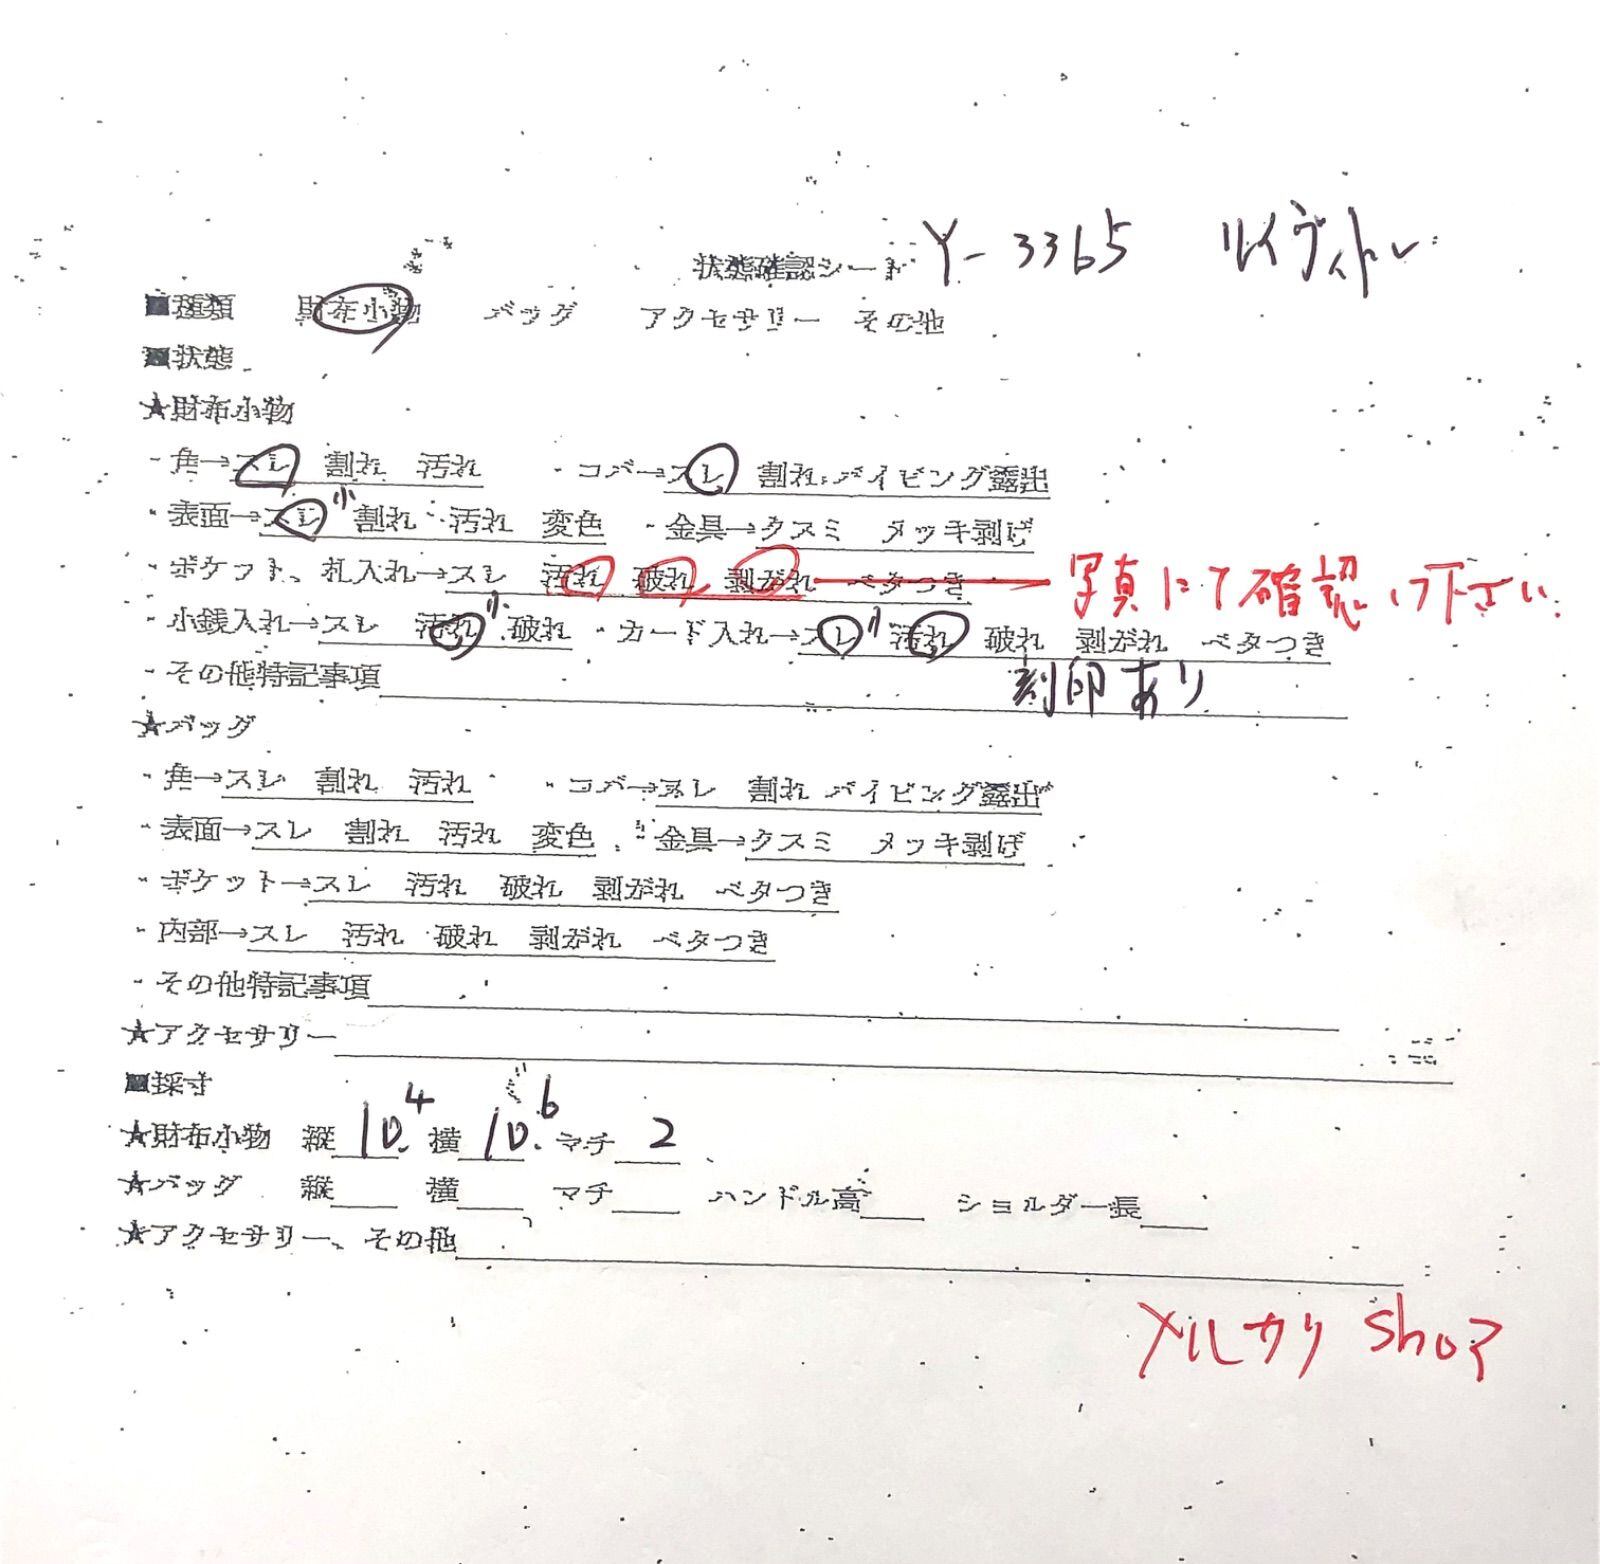 状態確認シート Y-3365 ルイヴィトン
■種類 財布小物 バッグ アクセサリー その他
■状態
★財布小物
・角→スレ 割れ 汚れ ・コバ→スレ 割れ パイピング露出
・表面→スレ 小 割れ 汚れ 変色 ・金具→クスミ メッキ剥げ
・ポケット、札入れ→スレ 汚れ 破れ 剥がれ ベタつき 写真にて確認下さい
・小銭入れ→スレ 汚れ 小 破れ ・カード入れ→スレ 汚れ 破れ 剥がれ ベタつき
・その他特記事項 刻印あり
★バッグ
・角→スレ 割れ 汚れ ・コバ→スレ 割れ パイピング露出
・表面→スレ 割れ 汚れ 変色 ・金具→クスミ メッキ剥げ
・ポケット→スレ 汚れ 破れ 剥がれ ベタつき
・内部→スレ 汚れ 破れ 剥がれ ベタつき
・その他特記事項
★アクセサリー
■採寸
★財布小物 縦 10.4 横 10.6 マチ 2
★バッグ 縦 横 マチ ハンドル高 ショルダー長
★アクセサリー、その他
メルカリ Shop